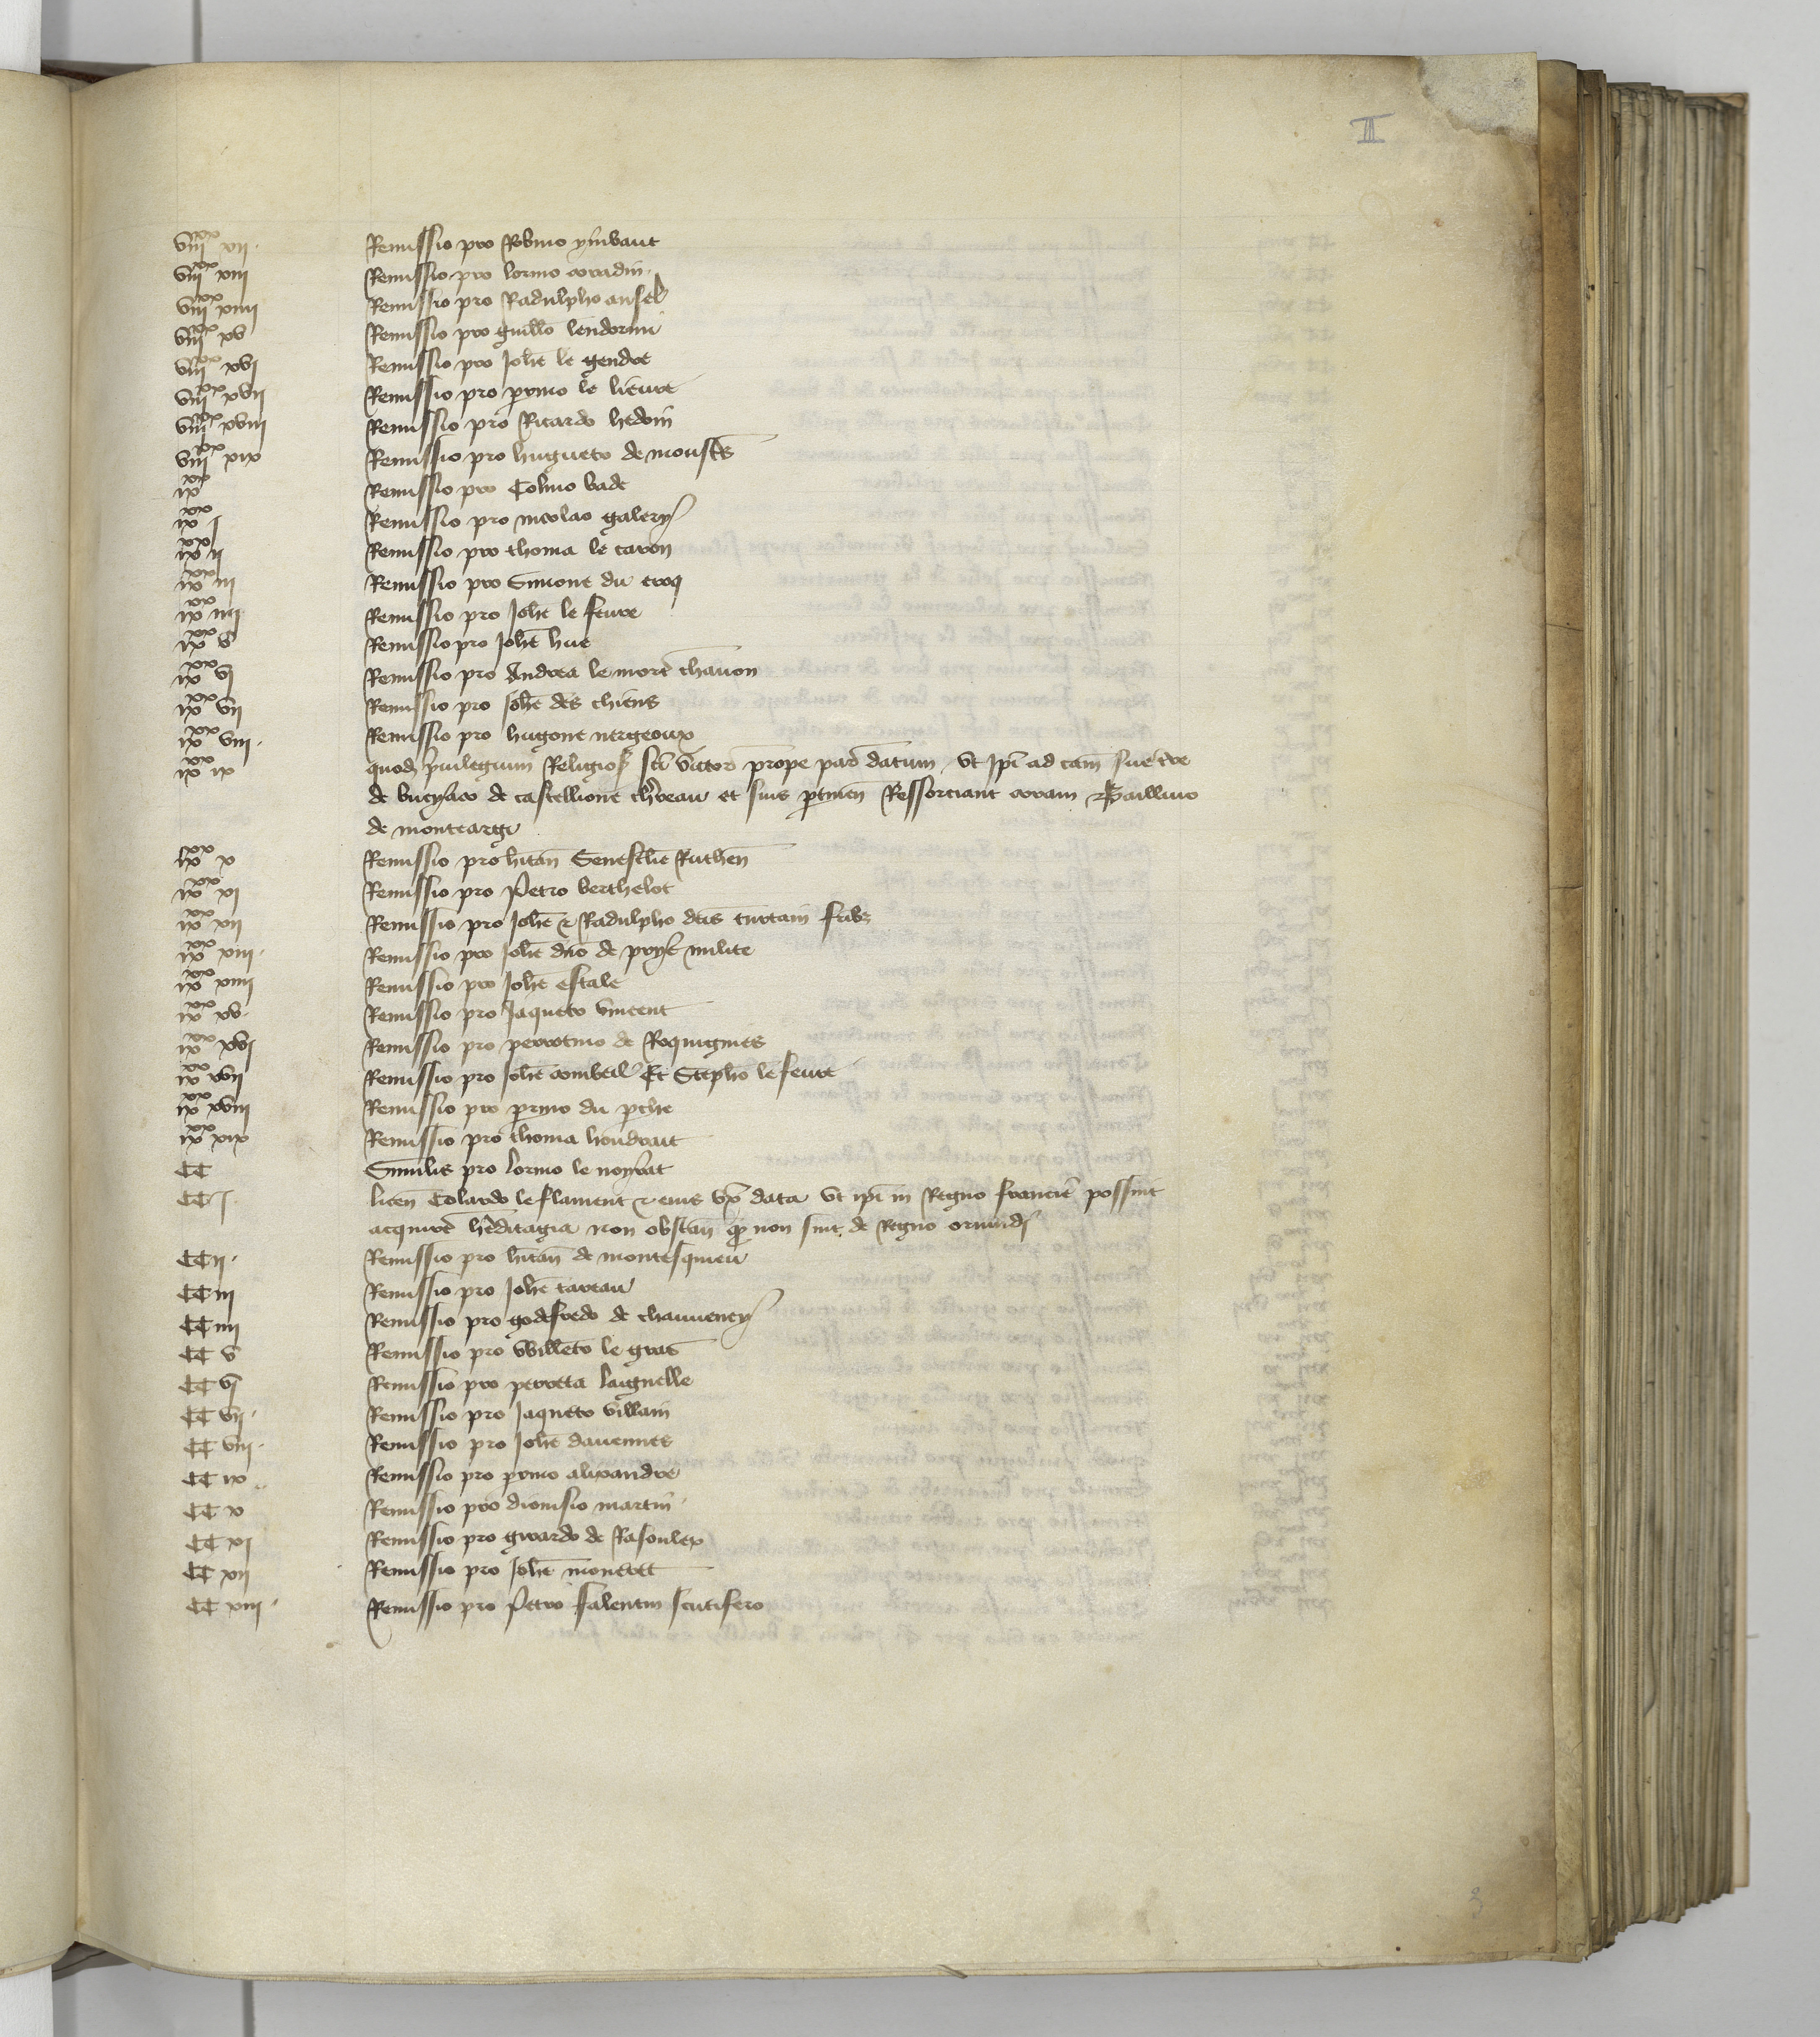 II
viii xx xii. Remissio pro Robino ymbaut
viii xx xiii Remissio pro lorino coradin.
viii xx xiiii Remissio pro Radulpho ansel
viii xx xv Remissio pro guillo lendormi
viii xx xvi Remissio pro Johe le gendre
viii xx xvii Remissio pro perino le lieure
viii xx xviii Remissio pro Ricardo hedoin
viii xx xix Remissio pro hugueto de
ix xx Remissio pro Colino bade
ix xx i Remissio pro nicolao galery
ix xx ii Remissio pro thoma le caron
ix xx iii Remissio pro Simone du croq
ix xx iiii Remissio pro Johe le feure
ix xx v Remissio pro Johe hue
ix xx vi Remissio pro Andrea le more
ix xx vii Remissio pro Johe des chiens
ix xx viii. Remissio pro hugone nergeoux
ix xx ix quodd priuilegium Religios sci victor prope par datum vt Ipi ad cam sue tre
de bucyaco de castellione et suis ptinen Ressorciant coram Bailliuo
de monteargi
ix xx x Remissio pro hitan Senescllie Ruthen
ix xx xi Remissio pro Petro berthelot
ix xx xii Remissio pro Johe & Radulpho dcis turtain frib3
ix xx xiii. Remissio pro Johe dno de milite
ix xx xiiii Remissio pro Johe estale
ix xx xv. Remissio pro Jaqueto vincent
ix xx xvi Remissio pro perrotino de Roquignies
ix xx xvii Remissio pro Johe Et Stepho le feure
ix xx xviii Remissio pro perino du pche
ix xx xix Remissio pro thoma houdrait
CC Similis pro lorino le noyrat
CC i. licen Colardo le flament & eius vx data vt ipi in Regno francie possint
acquire heditagia non obstan q non sint de Regno oriundi
CC ii. Remissio pro hitan de montesquieu
CC iii Remissio pro Johe tareau
CC iiii Remissio pro godefredo de chauuency
CC v Remissio pro Willeto le gras
CC vi Remissio pro perreta laignelle
CC vii. Remissio pro Jaqueto villain
CC viii. Remissio pro Johe dauennes
CC ix.. Remissio pro perino alixandre
CC x Remissio pro dionisio martin.
CC xi Remissio pro girardo de Rasoulex
CC xii Remissio pro Johe
CC xiii. Remissio pro Petro salentin scutifero
3